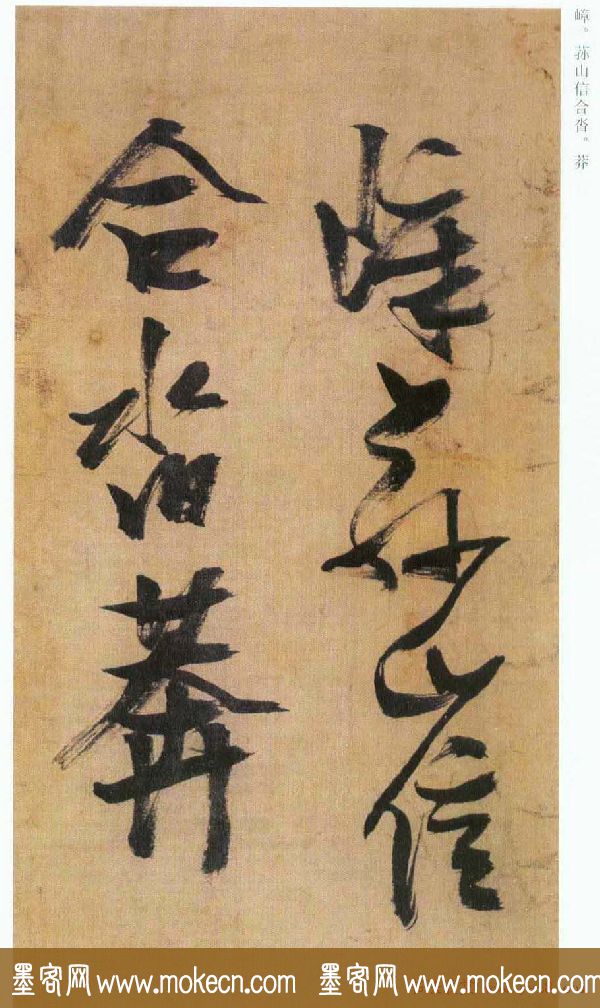 嶂。荪山信合沓。莽
嶂荪山信
合沓莽
墨客网 www.mokecn.com 墨客网 www.mokecn.com